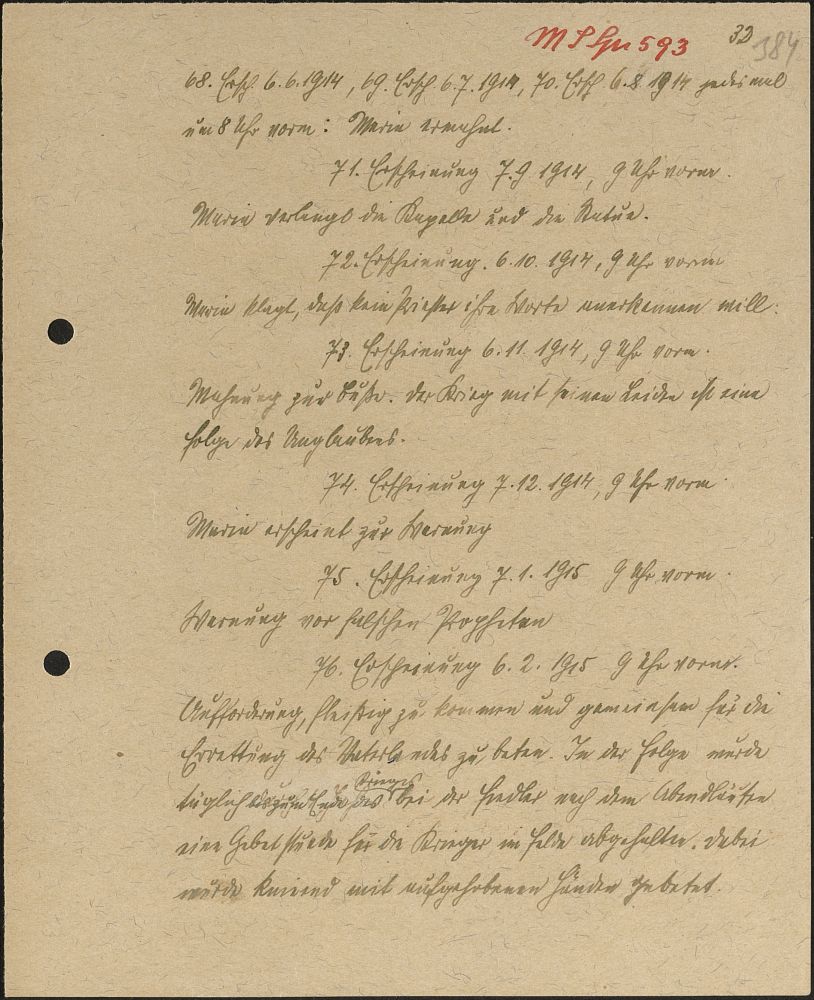 M S Gu 593 32 384
68. Ersch. 6.6.1914, 69. Ersch. 6.7.1914, 70. Ersch. 6.8.1914 jedesmal
um 8 Uhr vorm: Maria ermahnt.
71. Erscheinung 7.9.1914, 9 Uhr vorm.
Maria verlangt die Kapelle und die Statue.
72. Erscheinung. 6.10.1914, 9 Uhr vorm
Maria klagt, daß kein Priester ihre Worte anerkennen will.
73. Erscheinung 6.11.1914, 9 Uhr vorm.
Mahnung zur Buße. Der Krieg mit seinen Leiden ist eine
Folge des Unglaubens.
74. Erscheinung 7.12.1914, 9 Uhr vorm.
Maria erscheint zur Warnung
75. Erscheinung 7.1.1915 9 Uhr vorm.
Warnung vor falschen Propheten
76. Erscheinung 6.2.1915 9 Uhr vorm.
Aufforderung, fleißig zu kommen und gemeinsam für die
Errettung des Vaterlandes zu beten. In der Folge wurde
täglich bis zum Ende des Krieges bei der Fiedler nach dem Abendläuten
eine Gebetstunde für die Krieger im Felde abgehalten. Dabei
wurde knieend mit aufgehobenen Händen gebetet.